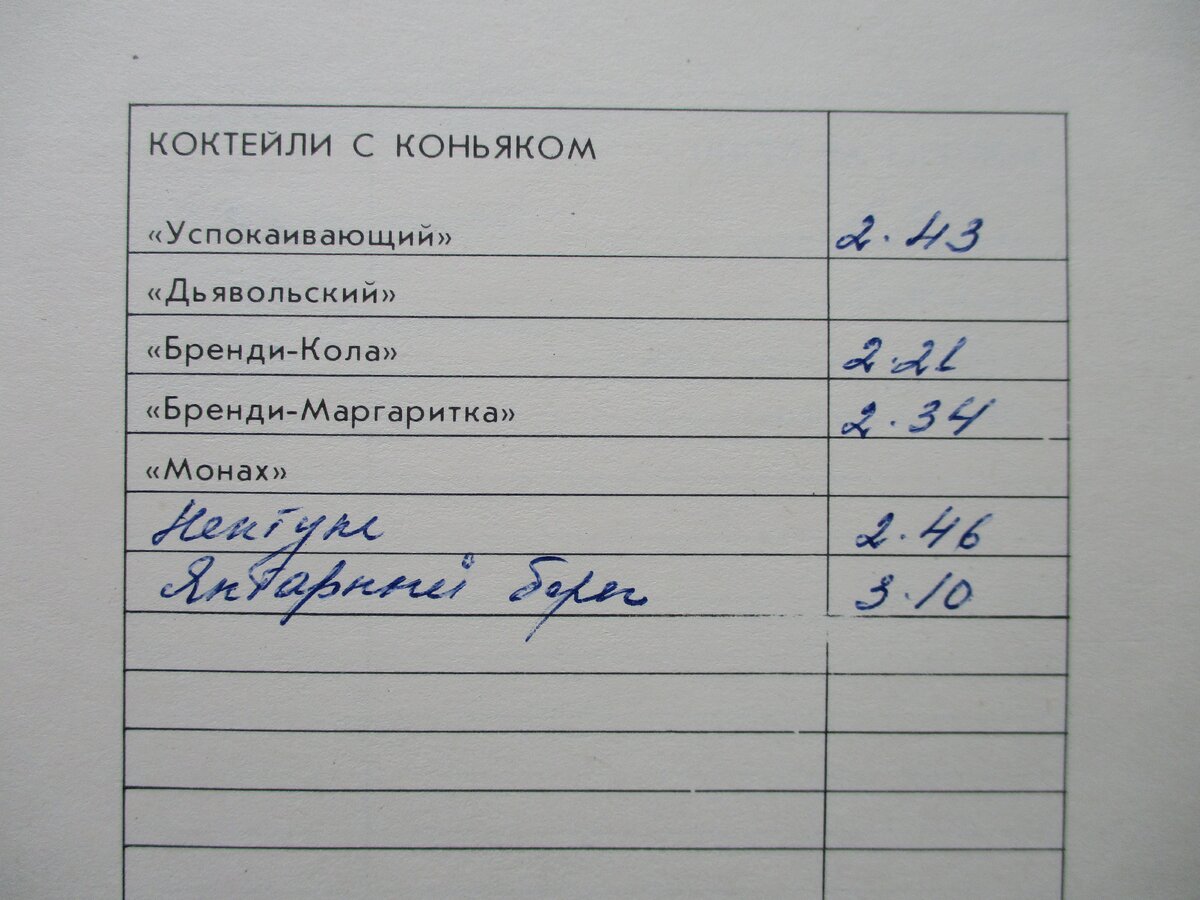 КОКТЕЙЛИ С КОНЬЯКОМ
«Успокаивающий» 2.43
«Дьявольский»
«Бренди-Кола» 2.21
«Бренди-Маргаритка» 2.34
«Монах»
Нептун 2.46
Янтарный берег 3.10